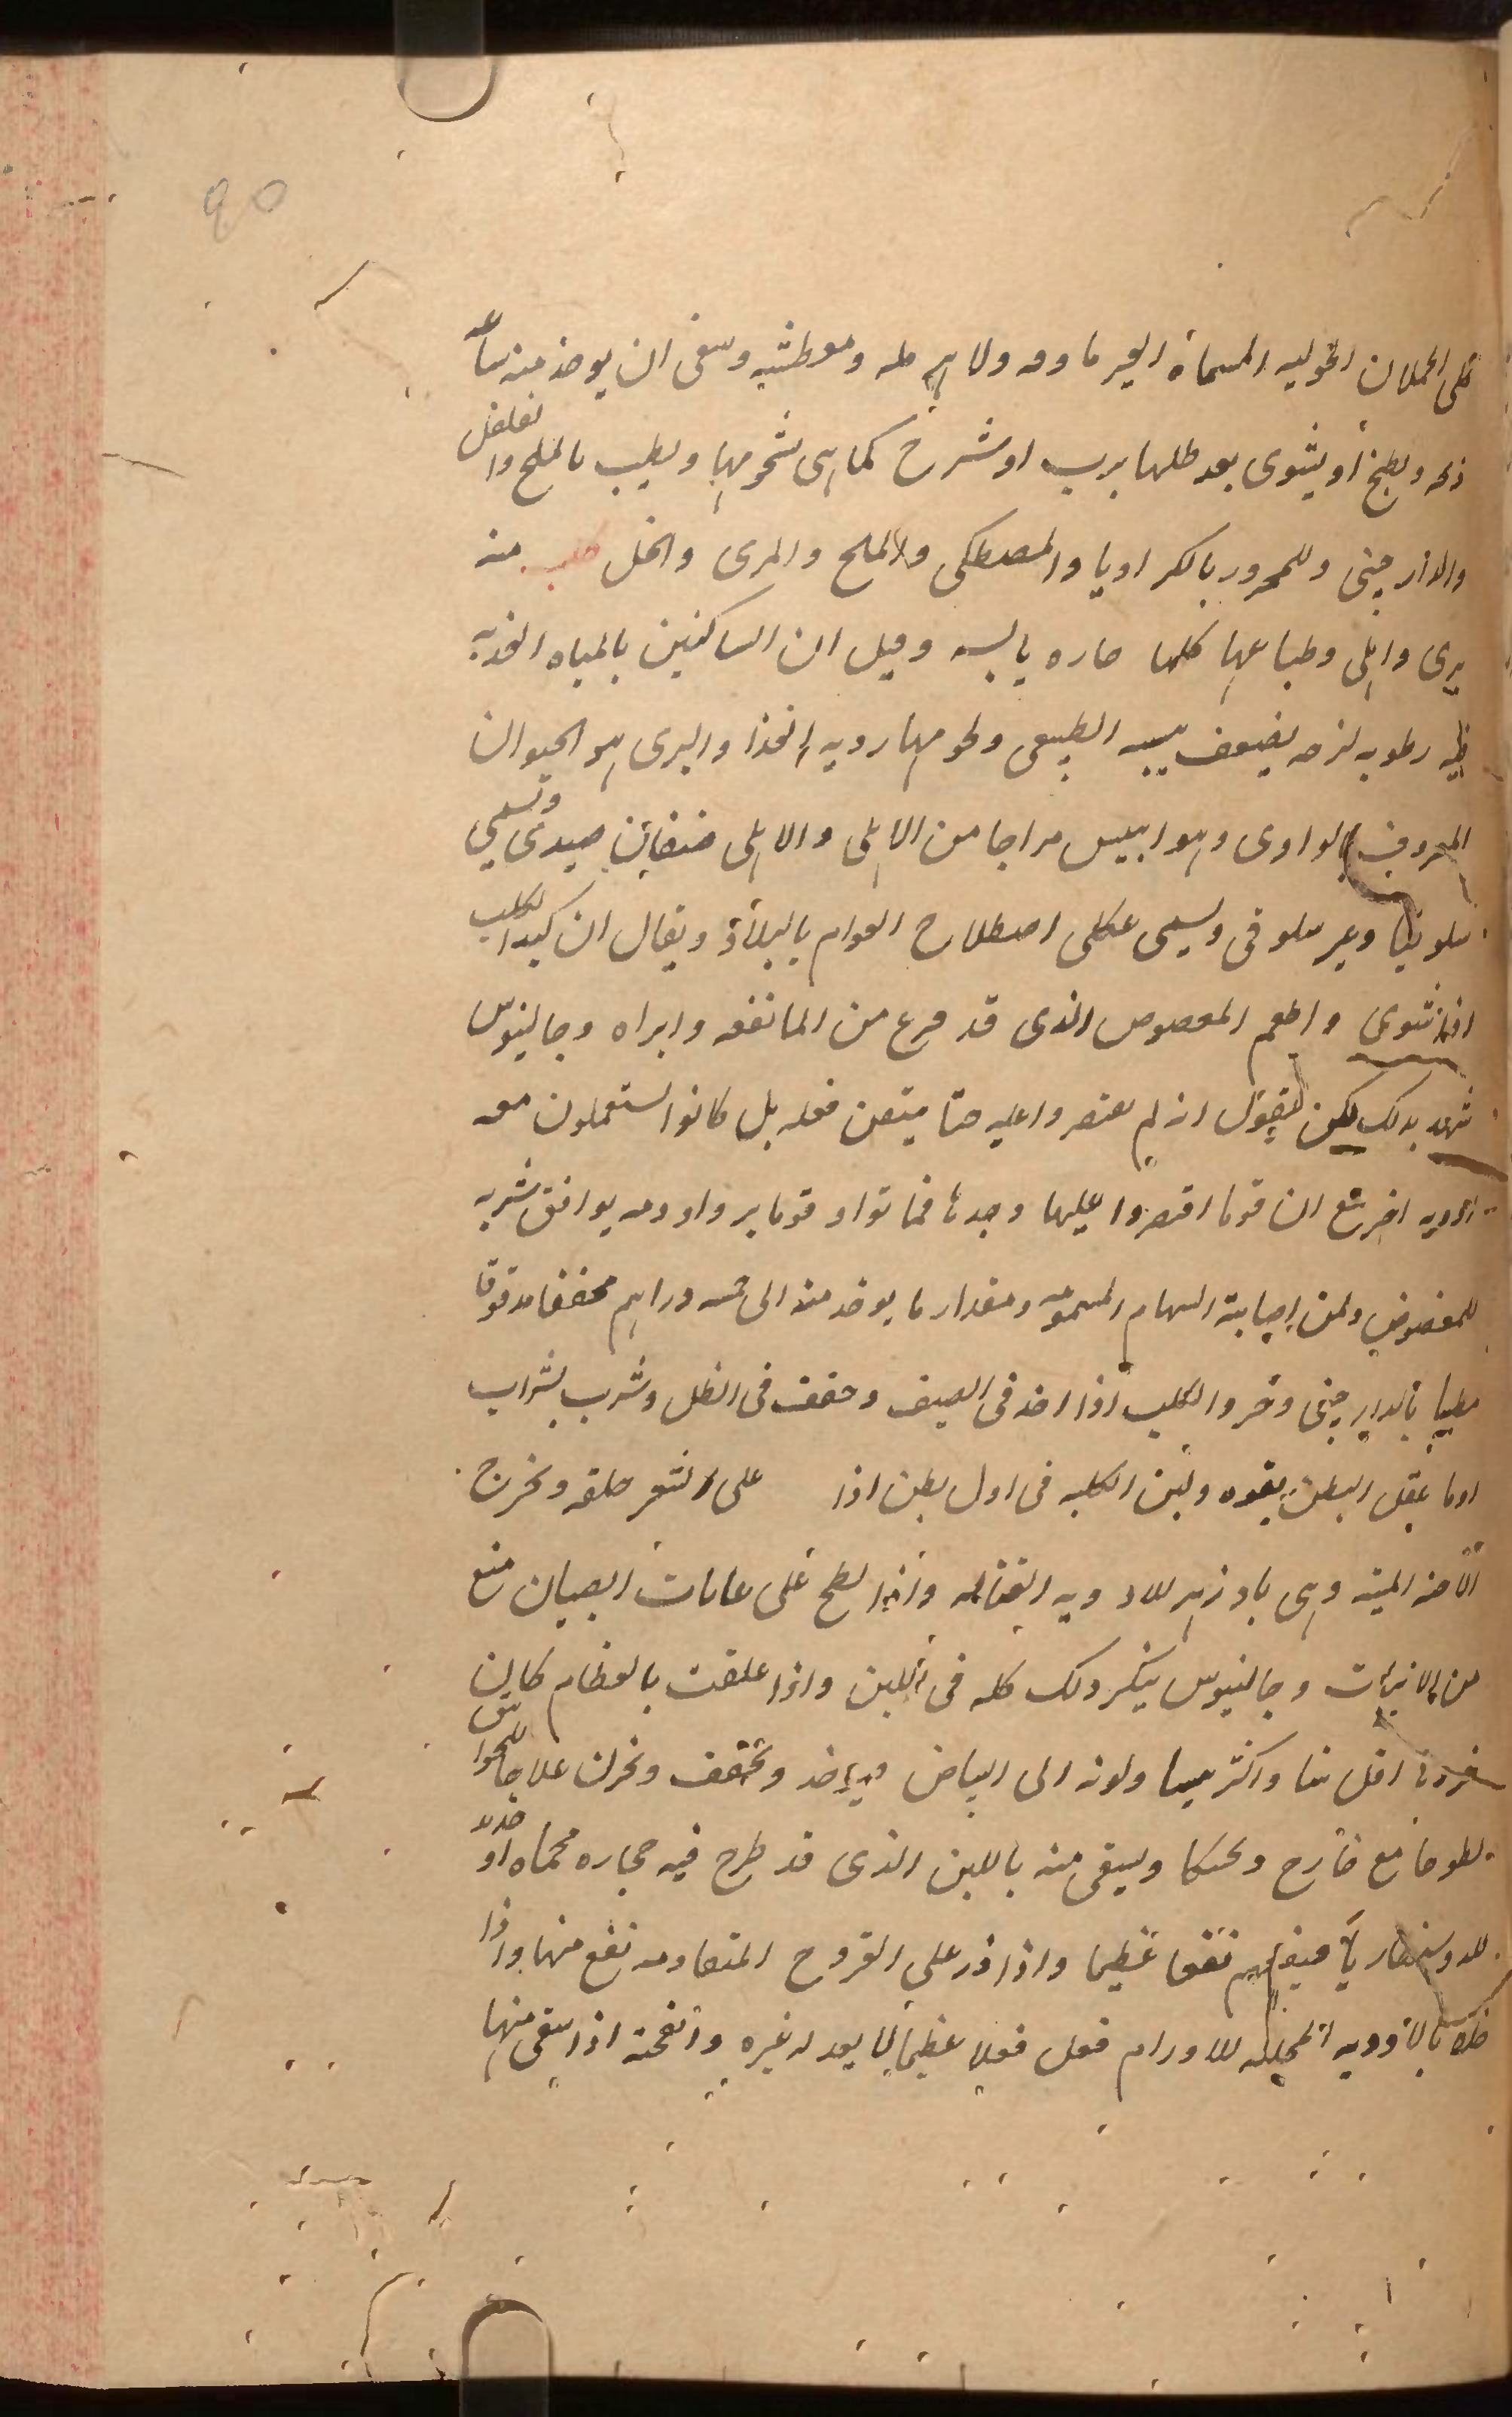 90
كلى الحملان الحوليه المسماة الغير ماووه ولا هرمله ومعطشه وينبغى ان يوخذ منه ساعه
ذبحه ويطبخ أو يشوى بعد طلها برب او شرح كما هى شحومها ويطيب بالملح والفلفل
والدارجينى وللمحرور بالكراويا والمصطكى والملح والمرى والخل كلب منه
برى واهلى وطباعها كلها حاره يابسه وقيل ان الساكنين بالمياه العذبه
فيه رطوبه لزجه يضعف يبسه الطبيعى ولحومها رديه الغذا والبرى هو الحيوان
المعروف بالواوى وهو ايبس مزاجا من الاهلى والاهلى صنفان صيدى وتسمى
سلوقيا وغير سلوقى ويسمى عكلى اصطلاح العوام ويقال ان كبد الكلب
اذا شوى واطعم المعضوض الذى قد فزع من الما نفعه وابراه وجالينوس
شهد بذلك لكن يقول انه لم يقتصروا عليه حتا يتيقن فعله بل كانوا يستعملون معه
ادويه اخر مع ان قوما اقتصروا عليها وحدها فماتوا وقوما بروا ودمه يوافق شربه
للمعضوض ولمن اصابته السهام المسمومه ومقدار ما يوخذ منه الى خمسه دراهم مجففا مدقوقا
مطيبا بالدارجينى وخرو الكلب اذا اخذ فى الصيف وجفف فى الظل وشرب بشراب
او ما يعقل البطن بقوه ولبن الكلبه فى اول بطن اذا على الشعر حلقه ويخرج
الاجنه الميته وهى بادزهر للادويه القتاله واذا لطخ على عانات الصبيان منع
من الانبات وجالينوس ينكر ذلك كله فى اللبن واذا علقت بالعظام كان
اقل نتنا واكثر يبسا ولونه الى البياض وياخذ ويجفف ويخزن علاجا للخوانيق
لطوخا مع خارج ومحنكا ويسقى منه باللبن الذى قد طرح فيه حجاره محماه او حديد
للدوسنطاريا فينفعهم نفعا عظيما واذا ذر على القروح المتقادمه نفع منها واذا
خلط بالأدويه المحلله للاورام فعل فعلا عظيما لا يعدله غيره وانفحته اذا سقى منها